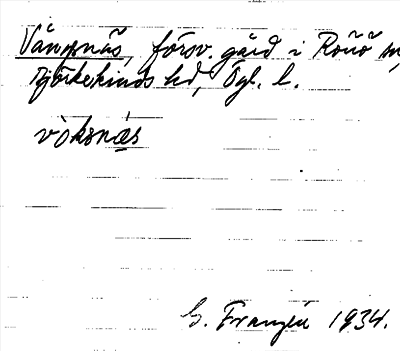 Vängsnäs, försv. gård i Rönö sn,
Björkekinds hd, Ögl. l.
vòksnäs
G. Franzén 1934.